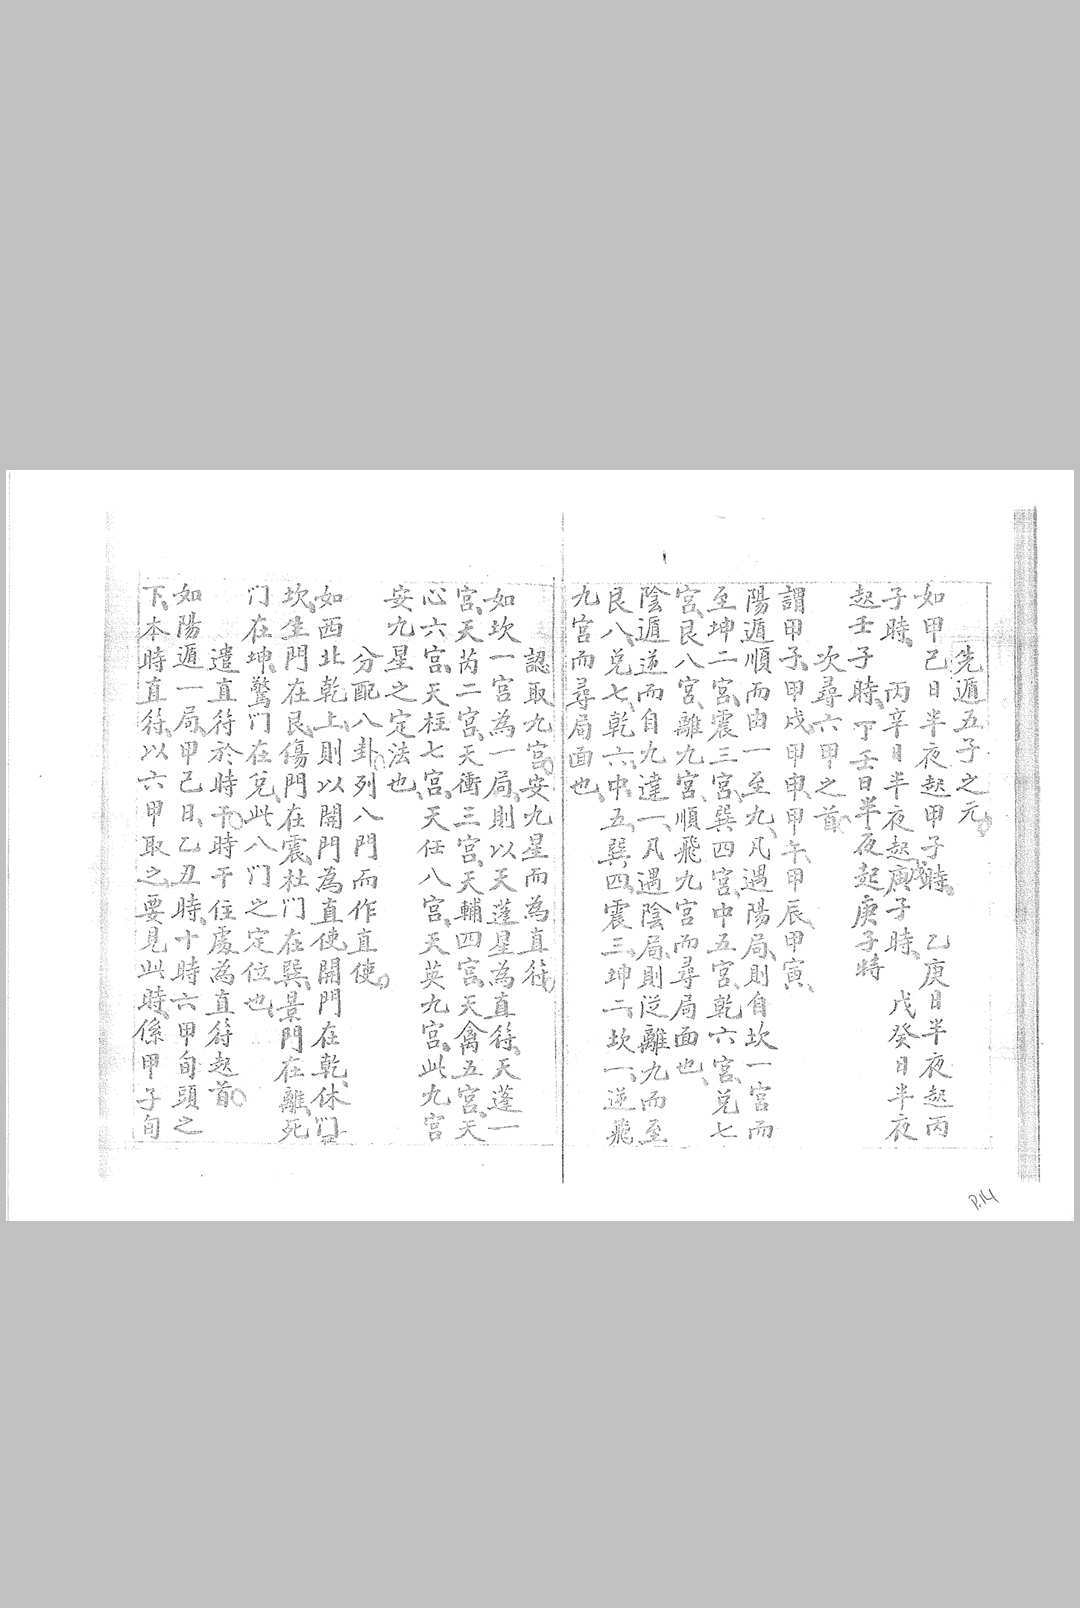 先遁五子之元
如甲己日半夜起甲子時、　乙庚日半夜起丙
子時、　丙辛日半夜起庚子時、　戊癸日半夜
起壬子時、丁壬日半夜起庚子時
次尋六甲之首
謂甲子、甲戌、甲申、甲午、甲辰、甲寅、
陽遁順而由一至九、凡遇陽局、則自坎一宮而
至坤二宮、震三宮、巽四宮、中五宮、乾六宮、兌七
宮、艮八宮、離九宮、順飛九宮而尋局面也、
陰遁逆而自九達一、凡遇陰局、則從離九而至
艮八、兌七、乾六、中五、巽四、震三、坤二、坎一、逆飛
九宮而尋局面也、
認取九宮、安九星而為直符
如坎一宮為一局、則以天蓬星為直符、天蓬一
宮、天芮二宮、天衝三宮、天輔四宮、天禽五宮、天
心六宮、天柱七宮、天任八宮、天英九宮、此九宮
安九星之定法也、
分配八卦列八門而作直使
如西北乾上、則以開門為直使、開門在乾、休门
坎、生門在艮、傷門在震、杜门在巽、景門在離、死
门在坤、驚门在兌、此八门之定位也、
遣直符於時干、時干住處為直符起首
如陽遁一局、甲己日、乙丑時、十時六甲旬頭之
下、本時直符、以六甲取之、要見此時、係甲子旬
P.14